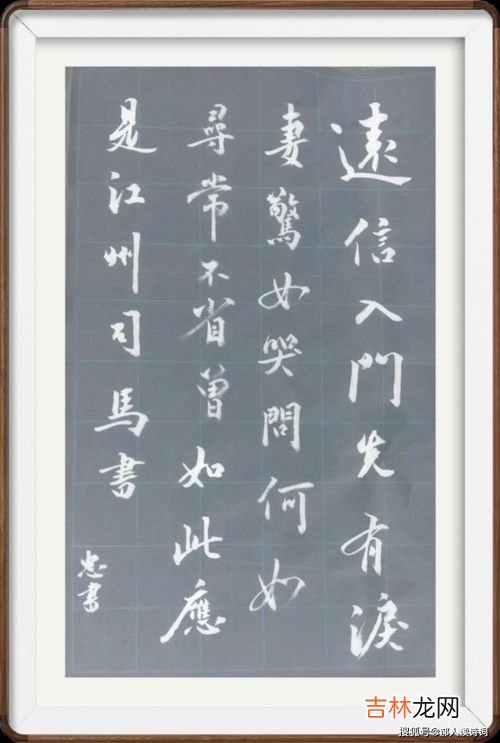 遠信入門先有淚
妻驚女哭問何如
尋常不省曾如此應
是江州司馬書
忠書
吉林龙网
搜狐号@